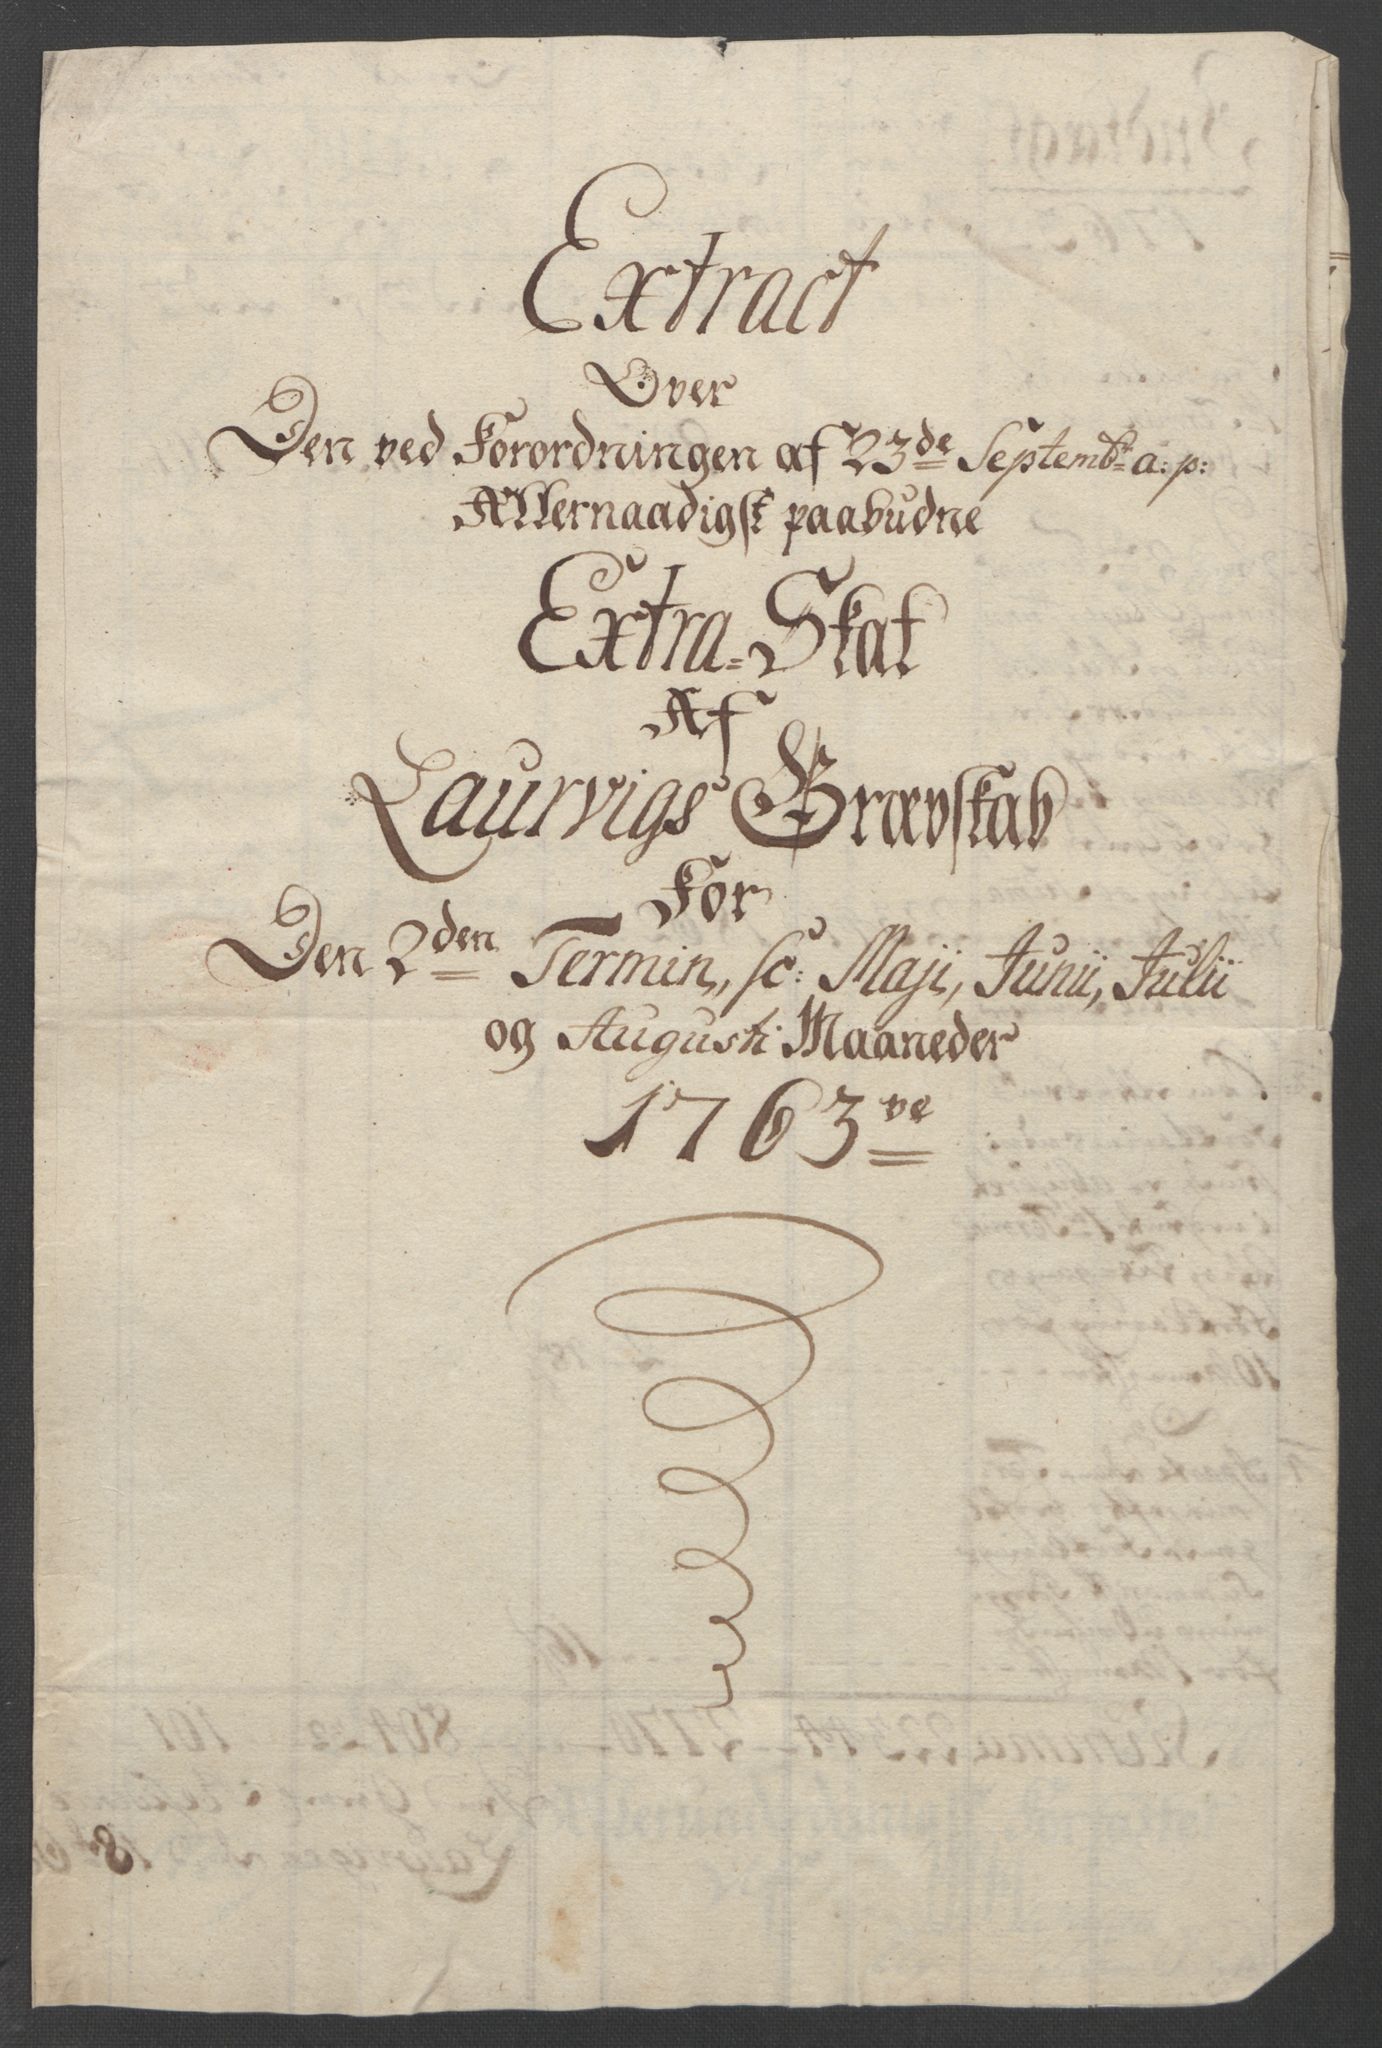 Extract
Over
Den ved Forordningen af 23de Septembr a: p:
Allernaadigst paabudne
Extra-Skat
Af
Laurvigs Grævskab
For
Den 2den Termin, sc: Maji, Junii, Julii
og Augusti Maaneder
1763ve